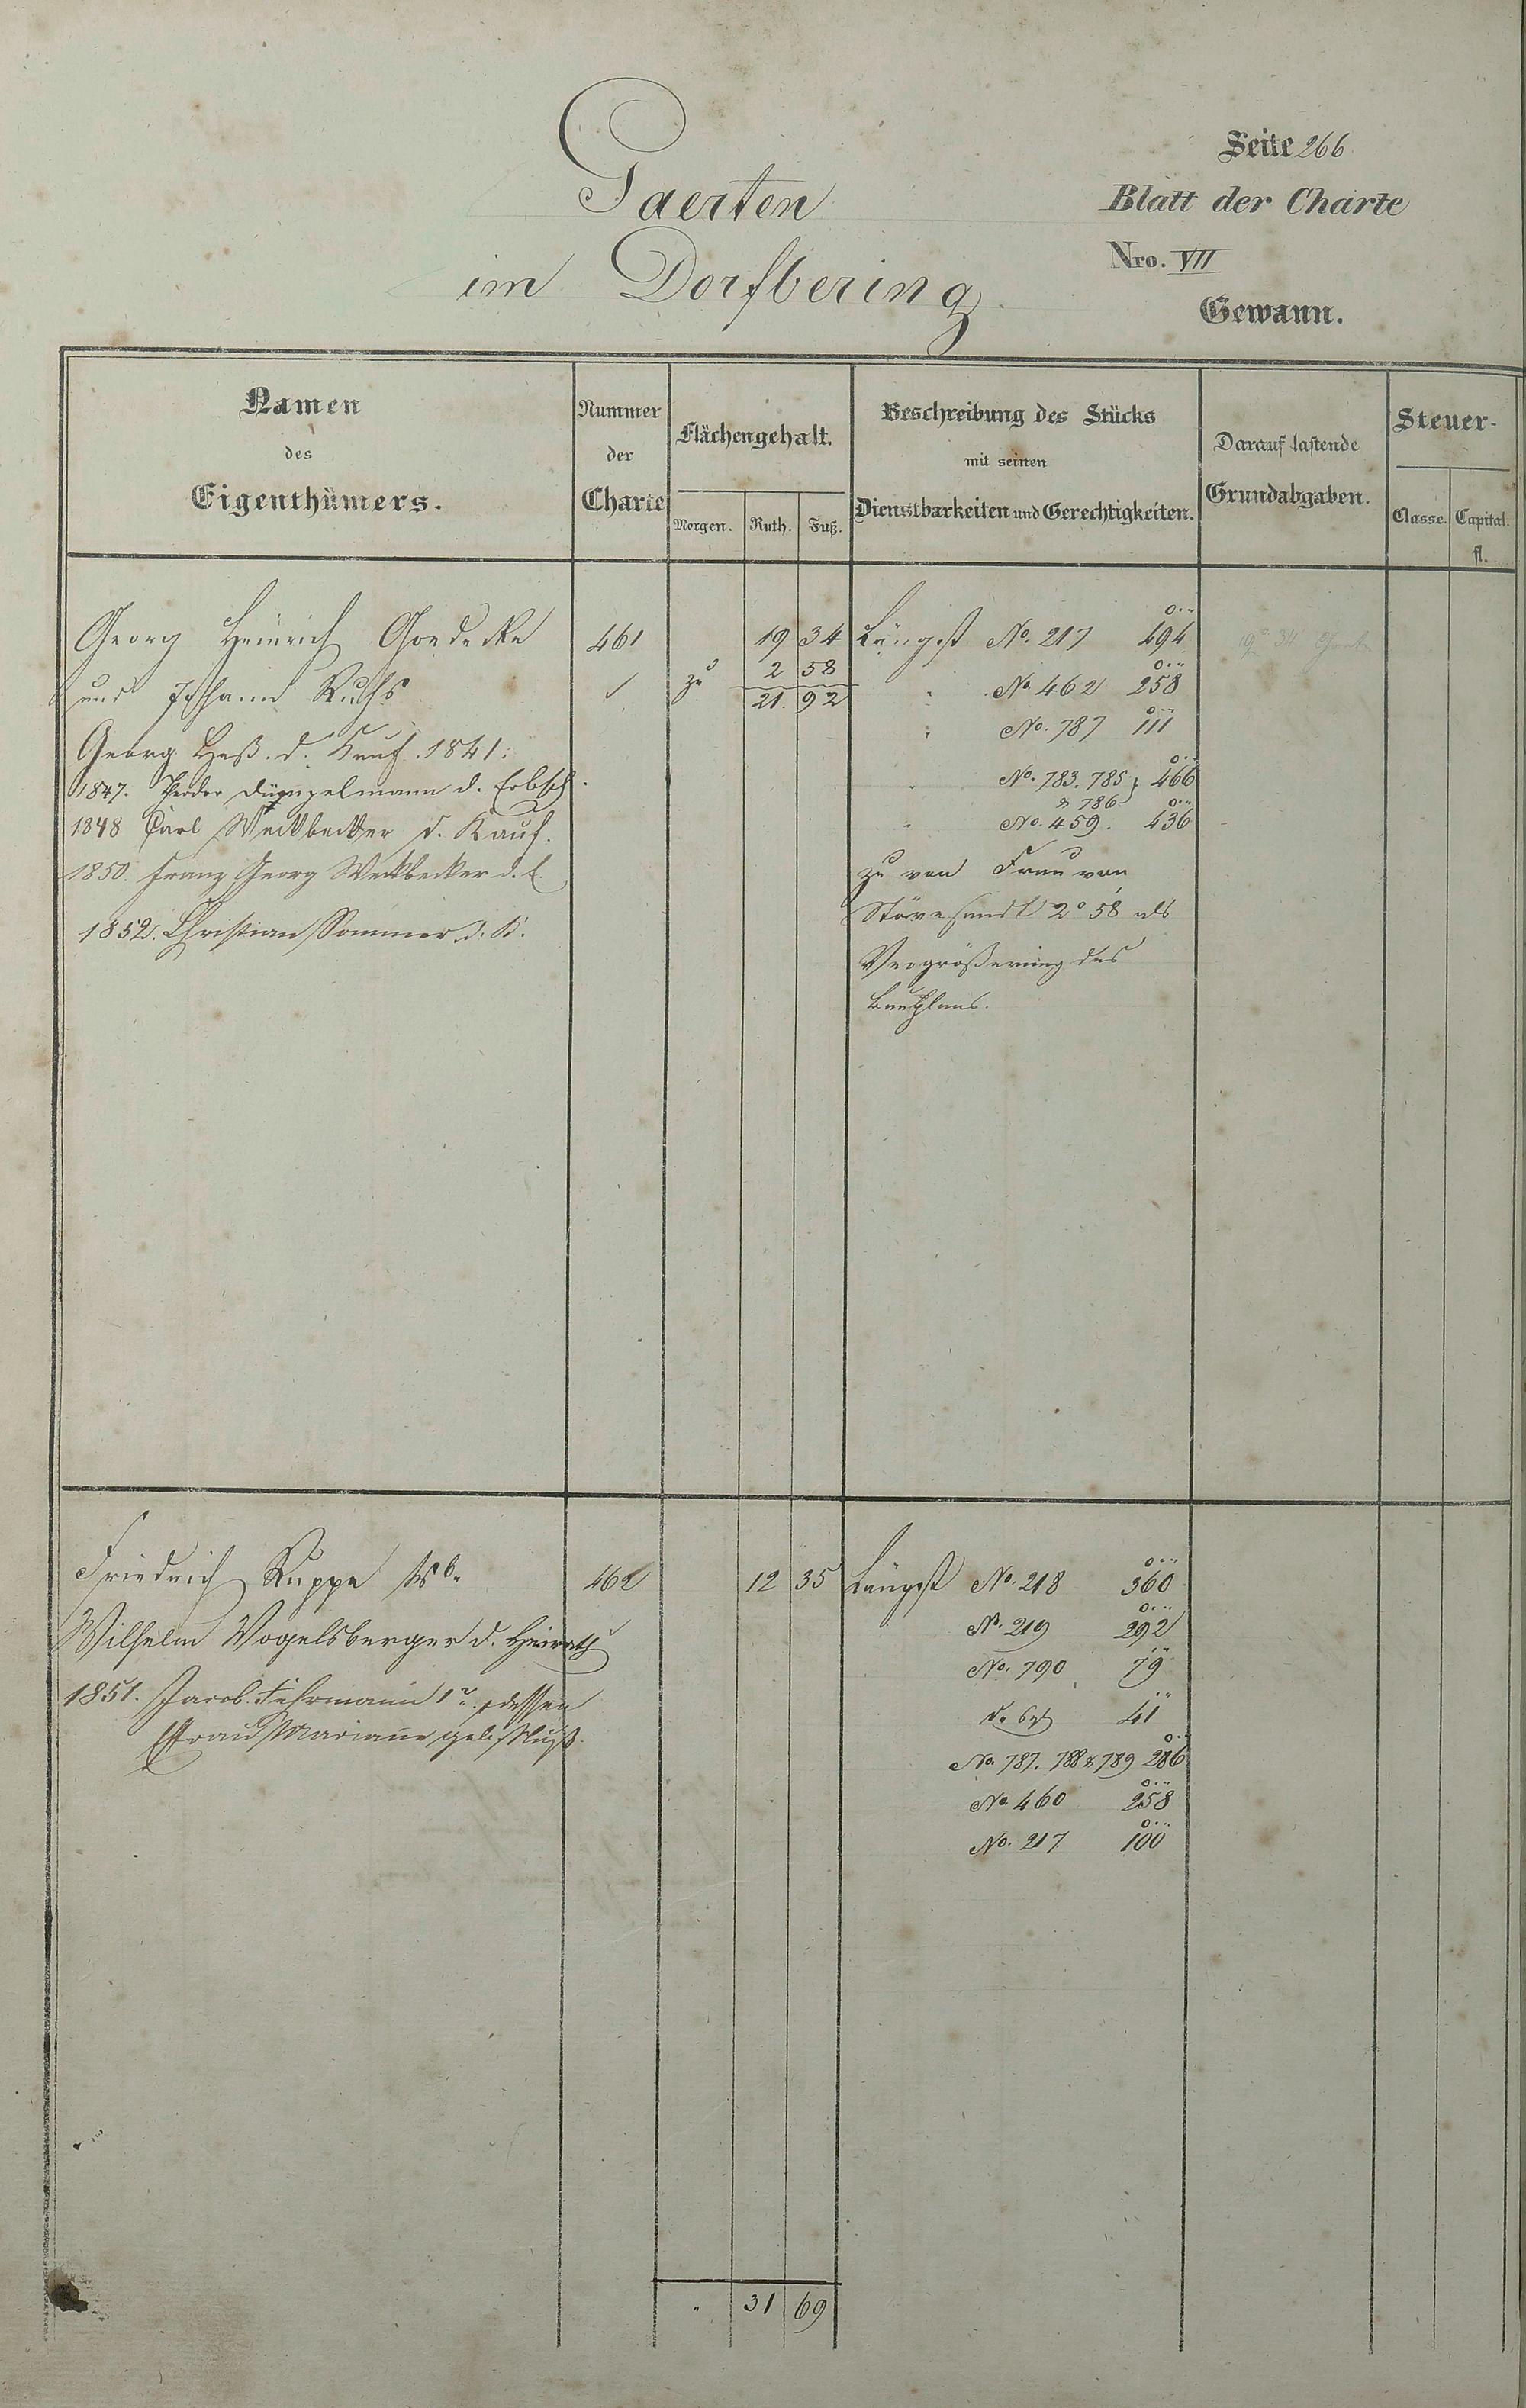 Seite 266
Gaerten
im Dorfbering
Blatt der Charte
Nro. VII
Gewann.
Namen
des
Eigenthümers.
Nummer
der
Charte
Flächengehalt.
Morgen. Ruth. Fuß.
Beschreibung des Stücks
mit seinen
Dienstbarkeiten und Gerechtigkeiten.
Darauf lastende
Grundabgaben.
Steuer-
Classe. Capital.
fl.
Georg Heinrich Goedecke 461 19 34 Längst No. 217 494
und Johann Ruhs zu 2 58 " No. 462 258
21. 92
Georg Heß. d. Kauf. 1841. " No. 787 111
1847. Theodor d. Erbsch. " No. 783. 785 466
& 786
1848 Carl Weckbecker d. Kauf. " No. 459. 436
1850. Franz Georg Weckbecker d. E. zu von Frau von
2° 58' als
1852. Christian Sommer d. K.
Vergrößerung des
Bauplans.
Friedrich Ruppe 462 12 35 Längst No. 218 360
Wilhelm Vogelsberger d. Heirath No. 219 292
No. 790 79
1851. Jacob Fuhrmann 1r. & dessen
41
Efrau Mariane geb.
No. 787. 788 & 789 286
No. 460 258
No. 217 100
" 31 69